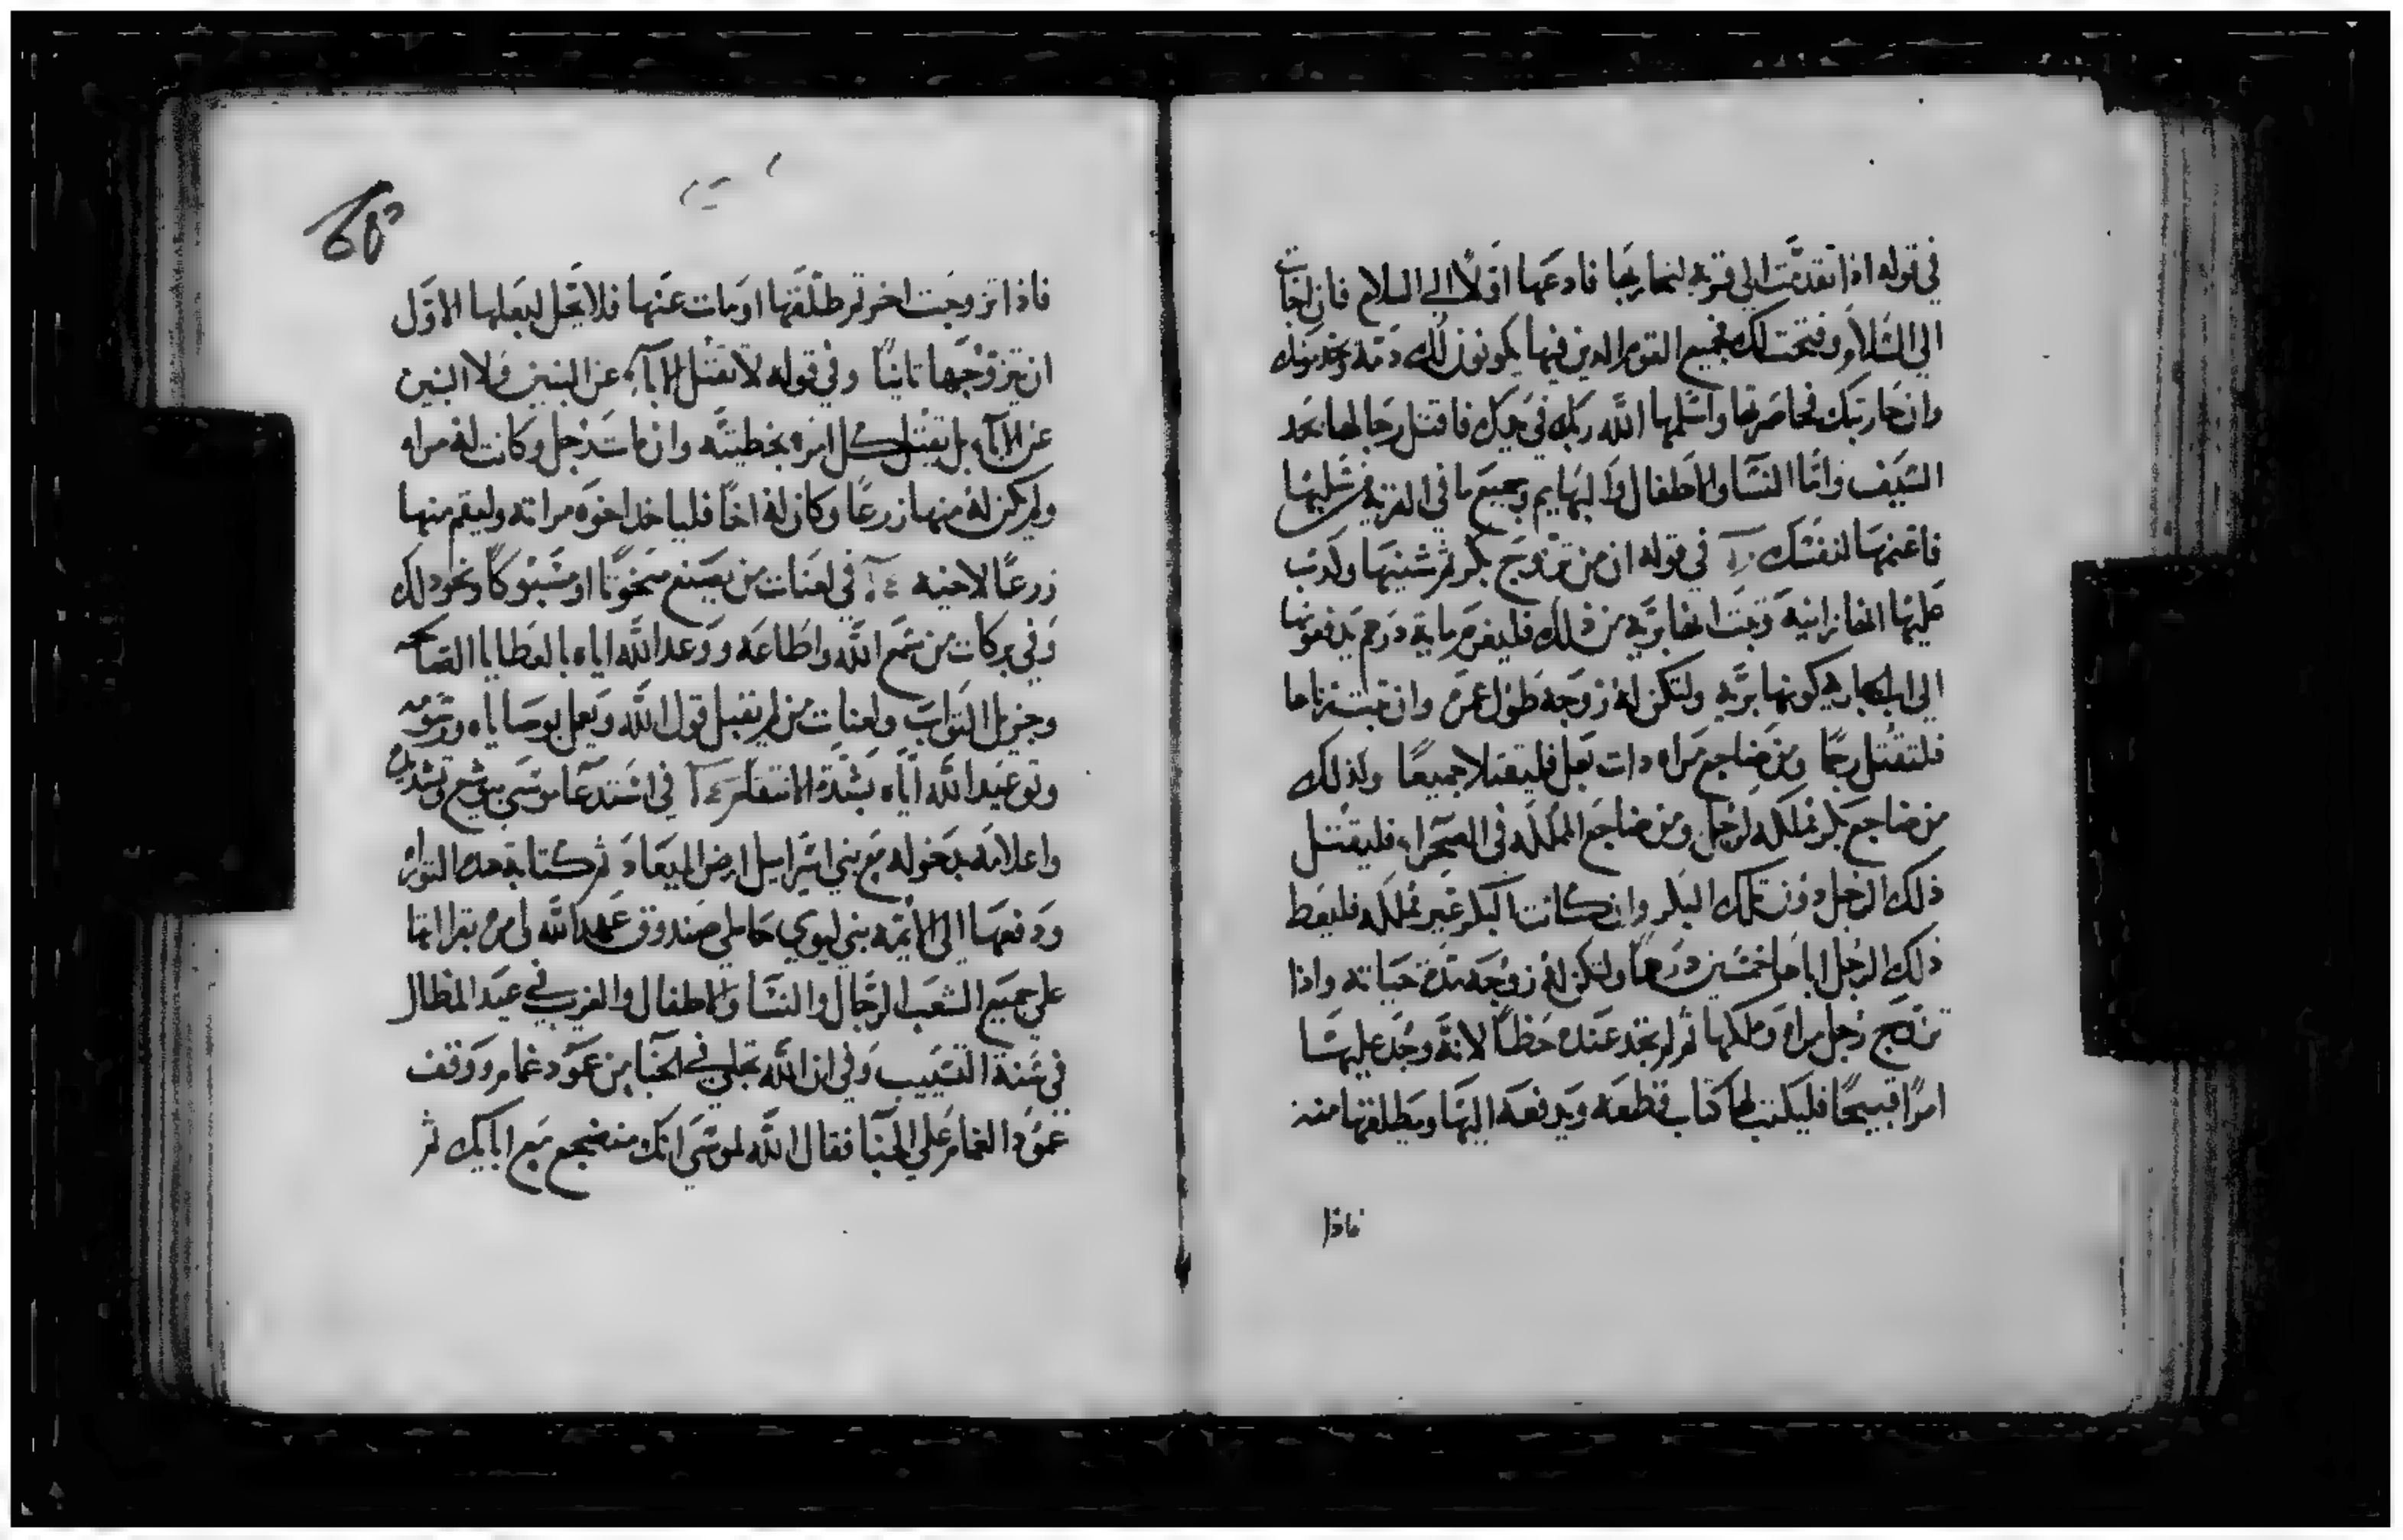 في قوله اذا تقدمت الي قرية لتحاربها فادعها اولا الي السلام فان اجابت
الي السلام وفتحت لك فجميع القوم الدين فيها يكونون لك دمة ويخدمونك
وان حاربتك فحاصرتها واسلمها الله ربك في يديك فاقتل رجالها بحد
السيف واما النسا والاطفال والبهايم وجميع ما في القرية من سليها
فاغنمها لنفسك في قوله ان من تزوج بكر ثم شنيها وكدب
عليها انها زانية وتبت انها برية من ذلك فليغرم ماية درهم يدفعونها
الي اب الجارية كونها برية ولتكن له زوجة طول عمره وان تبت زناها
فلتقتل رجما ومن ضاجع مراه دات بعل فليقتلا جميعا ولذلك
من ضاجع بكر مملكه لرجل ومن ضاجع المملكه في الصحراء فليقتل
ذلك الرجل دون تلك البكر وان كانت البكر غير مملكه فليعط
ذلك الرجل اباها خمسين درهما ولتكن له زوجه مدة حياته واذا
تزوج رجل مراه وملكها ثم لم تجد عنده حظا لانه وجد عليها
امرا قبيحا فليكتب لها كتاب قطعه ويدفعه اليها ويطلقها منه
فاذا
فاذا تزوجت اخر ثم طلقها او مات عنها فلا يحل لبعلها الاول
ان يتزوجها تانيا وفي قوله لا تقتل الاباء عن البنين ولا البنين
عن الاباء بل يقتل كل امره بخطيته وان مات رجل وكانت له مراه
ولم يكن له منها زرعا وكان له اخا فلياخد اخوه مراته وليقم منها
زرعا لاخيه في لعنات من يصنع منحوتا او مسبوكا ونحو دلك
وفي بركات من سمع الله واطاعه ووعد الله اياه بالعطايا الصالحه
وجزيل التواب ولعنات من لم يقبل قول الله ويعمل بوصاياه ورسومه
وتوعيد الله اياه بشدة الانتقام في استدعا موسي يشوع وتشديده
واعلامه بدخوله مع بني اسراييل ارض الميعاد ثم كتابة هده التوراه
ودفعها الي الايمه بني ليوي حاملي صندوق عهد الله لي من يقراتها
علي جميع الشعب الرجال والنسا والاطفال والغريب في عيد المظال
في سنة التسييب وفي ان الله تجلي في الخبا من عمود غمام ووقف
عمود الغمام علي الخبا فقال الله لموسي انك منضجع مع ابايك ثم